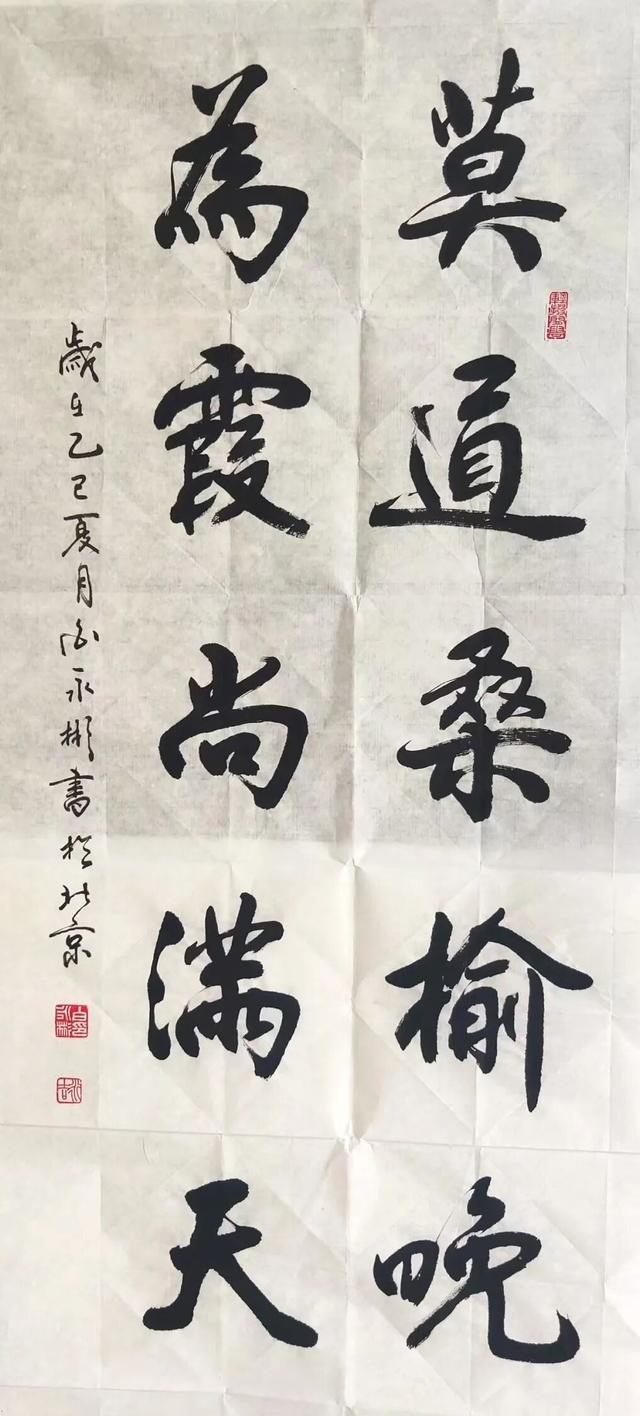 莫道桑榆晚
為霞尚满天
歲在乙巳夏月白永彬書於北京